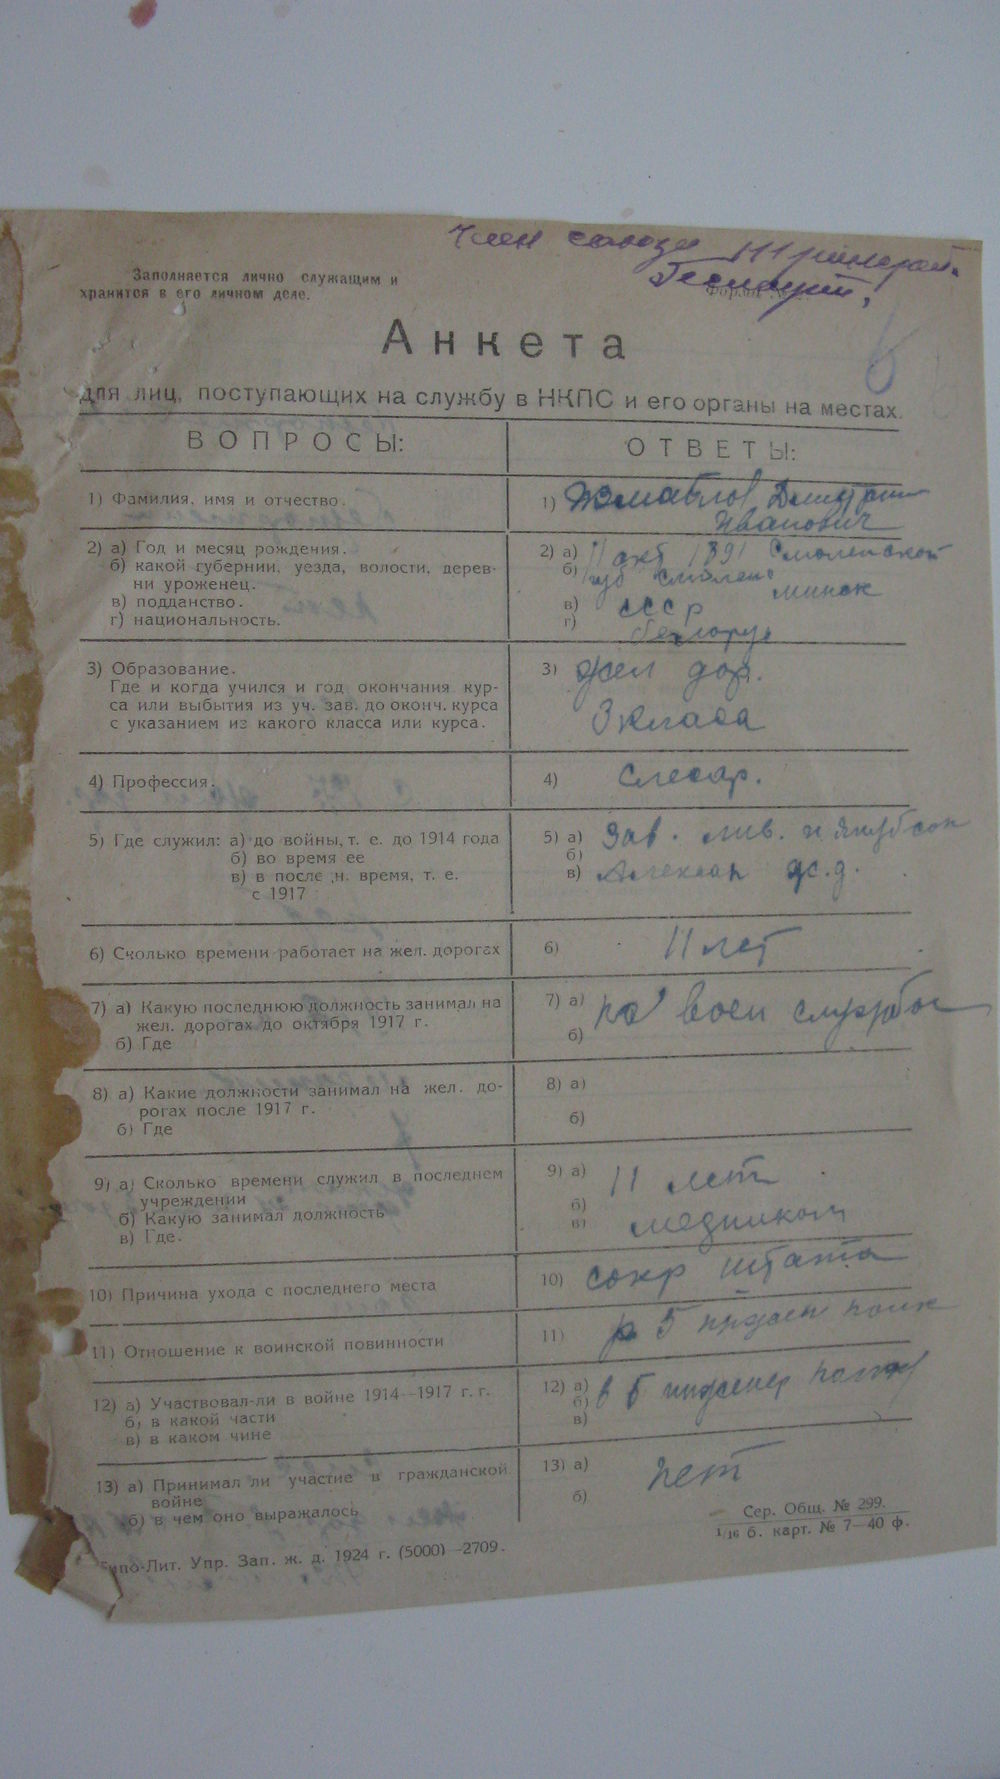 Член союза
Заполняется лично служащим и
хранится в его личном деле.
Форма
Анкета
для лиц, поступающих на службу в НКПС и его органы на местах.
ВОПРОСЫ:
ОТВЕТЫ:
1) Фамилия, имя и отчество.
1) Дмитрии
Иванович
2) а) Год и месяц рождения.
б) какой губернии, уезда, волости, дерев-
ни уроженец.
в) подданство.
г) национальность.
2) а) 11 окт 1891 Смоленской
б) губ Смолен
минск
в) СССР
г) белорус
3) Образование.
Где и когда учился и год окончания кур-
са или выбытия из уч. зав. до оконч. курса
с указанием из какого класса или курса.
3) жел дор.
3 класа
4) Профессия.
4) Слесар.
5) Где служил: а) до войны, т. е. до 1914 года
б) во время ее
в) в после н. время, т. е.
с 1917
5) а) Зав. лив. и Якубсон
б)
в) Алексан ж.д.
6) Сколько времени работает на жел. дорогах
6) 11 лет
7) а) Какую последнюю должность занимал на
жел. дорогах до октября 1917 г.
б) Где
7) а) на воен службы
б)
8) а) Какие должности занимал на жел. до-
рогах после 1917 г.
б) Где
8) а)
б)
9) а) Сколько времени служил в последнем
учреждении
б) Какую занимал должность
в) Где.
9) а) 11 лет
б)
в) медником
10) Причина ухода с последнего места
10) сокр штата
11) Отношение к воинской повинности
11) 5 полк
12) а) Участвовал-ли в войне 1914—1917 г. г.
б) в какой части
в) в каком чине
12) а) в 5 инженер
б)
в)
13) а) Принимал ли участие в гражданской
войне
б) в чем оно выражалось
13) а) нет
б)
Сер. Общ. № 299.
1/16 б. карт. № 7—40 ф.
Типо-Лит. Упр. Зап. ж. д. 1924 г. (5000) —2709.